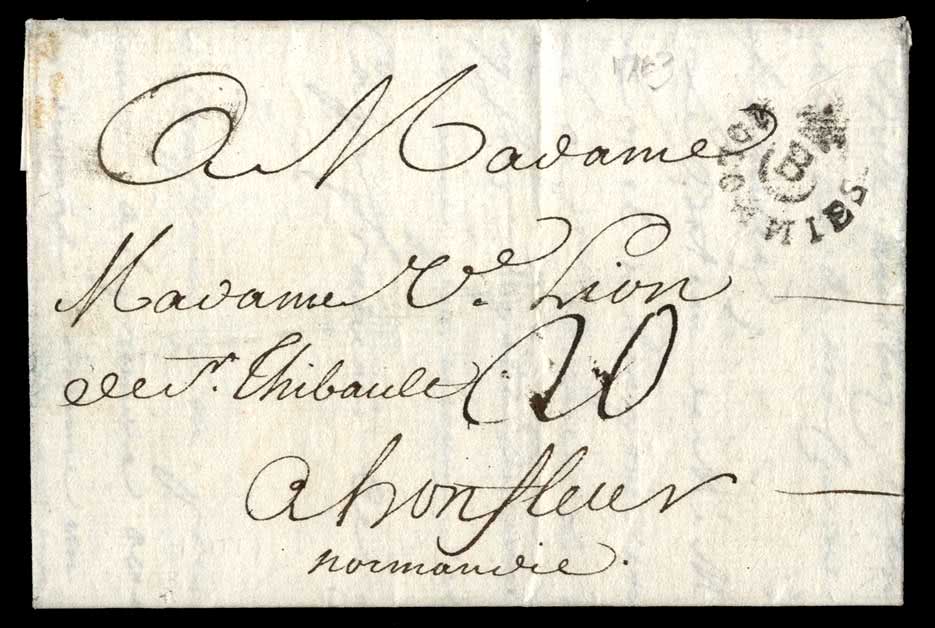 1763
A Madame
Madame Ve. Lion
de St. Thibault
20
a honfleur
normandie.
COLONIES
B